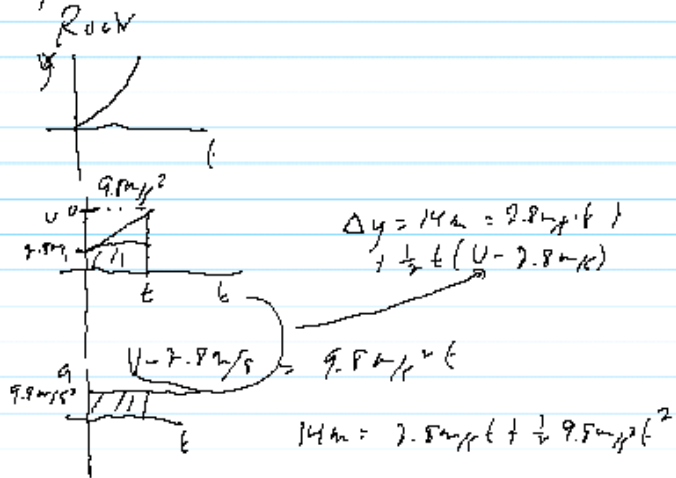 Rock
y
t
9.8m/s²
v
t
t
Δy = 14m = 2.8m/s · t +
+ ½ t (v - 2.8m/s)
v - 2.8m/s = 9.8m/s² t
a
9.8m/s²
t
14m = 2.8m/s t + ½ 9.8m/s² t²